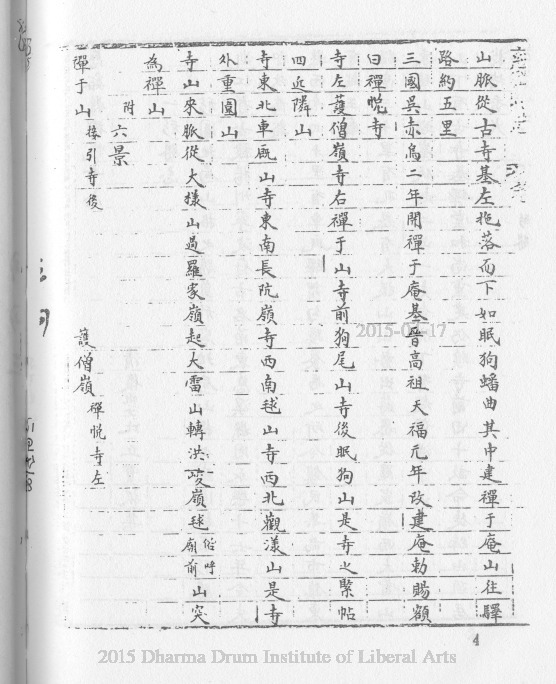 山脈從古寺基左拖落而下如眠狗蟠曲其中建禪于庵山往驛
路約五里
三國吳赤烏二年開禪于庵基晉高祖天福元年改建庵勅賜額
曰禪悅寺
寺左護僧嶺寺右禪于山寺前狗尾山寺後眠狗山是寺之緊帖
四近隣山
寺東北車厩山寺東南長阬嶺寺西南毬山寺西北觀漾山是寺
外重圍山
寺山來脈從大樣山過羅家嶺起大雷山轉洪峻嶺毬俗呼廟前山突
為禪山
附六景
禪于山 接引寺後 護僧嶺 禪悅寺左
2015-04-17
4
2015 Dharma Drum Institute of Liberal Arts